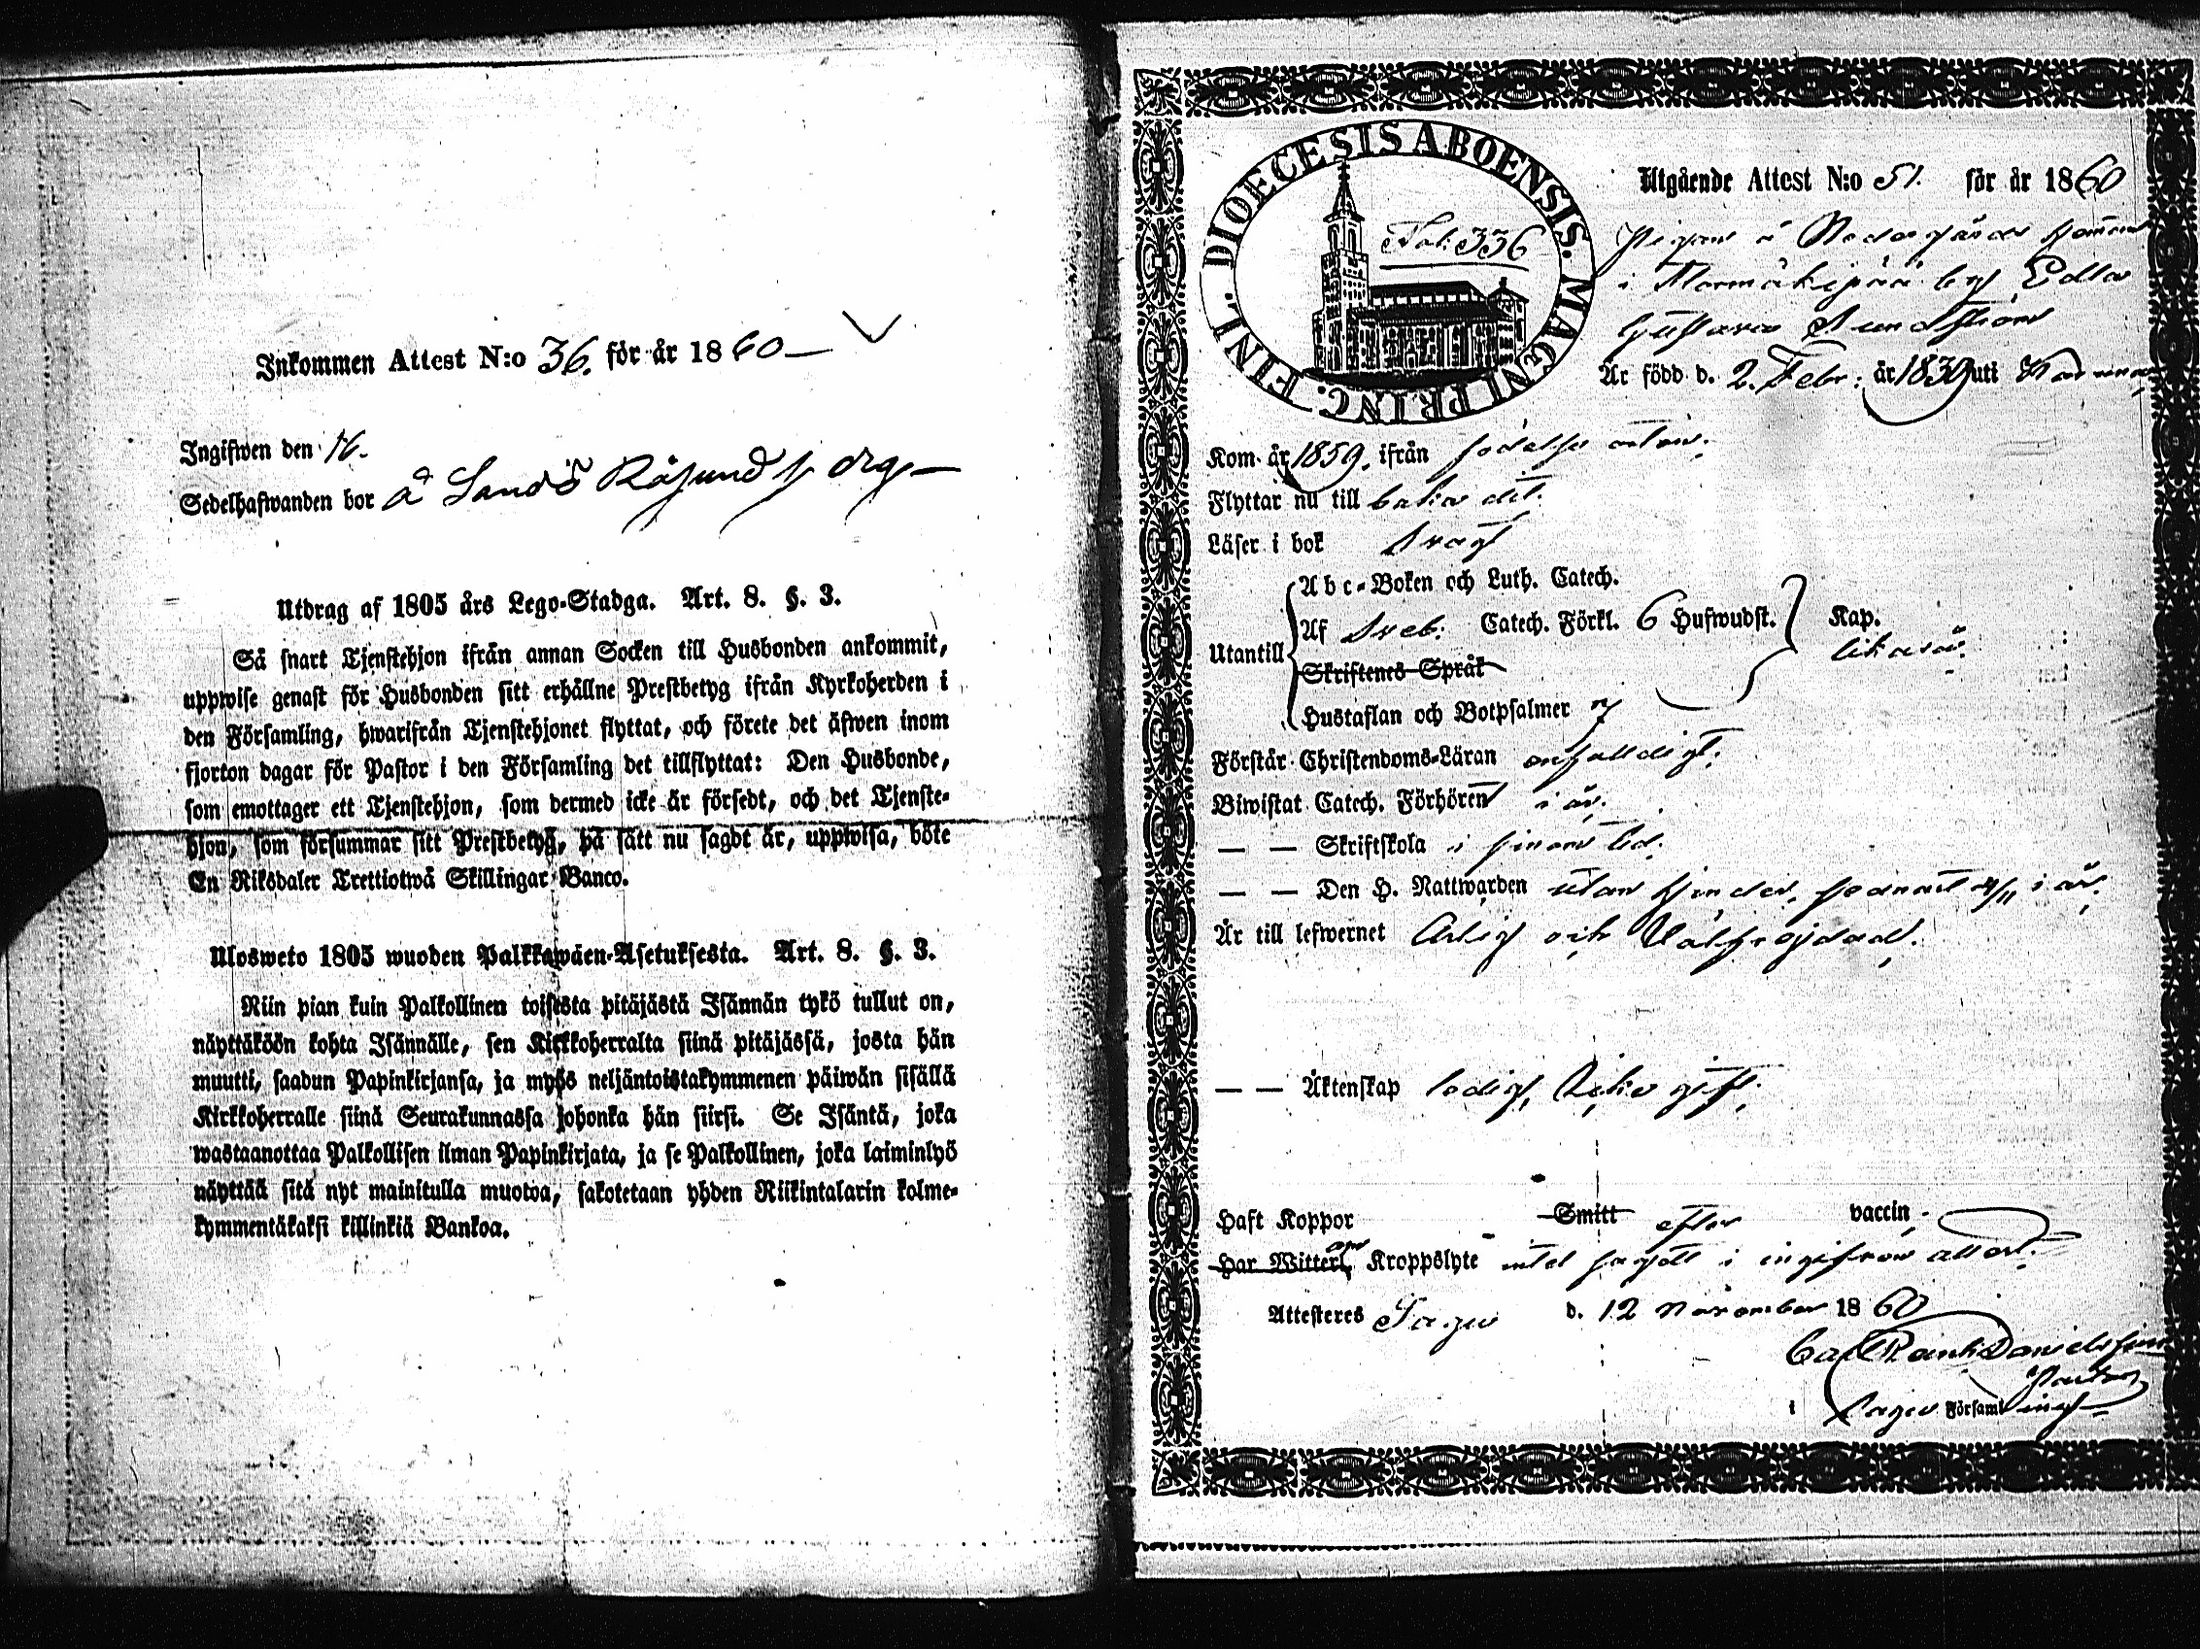 Inkommen Attest N:o 36. för år 1860 —
Ingifwen den 16.
Sedelhafwanden bor å Sandö
Utdrag af 1805 års Lego-Stadga. Art. 8. §. 3.
Så snart Tjenstehjon ifrån annan Socken till Husbonden ankommit,
uppwise genast för Husbonden sitt erhållne Prestbetyg ifrån Kyrkoherden i
den Församling, hwarifrån Tjenstehjonet flyttat, och förete det äfwen inom
fjorton dagar för Pastor i den Församling det tillflyttat: Den Husbonde,
som emottager ett Tjenstehjon, som dermed icke är försedt, och det Tjenste-
hjon, som försummar sitt Prestbetyg, på sätt nu sagdt är, uppwisa, böte
En Riksdaler Trettiotwå Skillingar Banco.
Ulosweto 1805 wuoden Palkkawäen-Asetuksesta. Art. 8. §. 3.
Niin pian kuin Palkollinen toisesta pitäjästä Isännän tykö tullut on,
näyttäköön kohta Isännälle, sen Kirkkoherralta siinä pitäjässä, josta hän
muutti, saadun Papinkirjansa, ja myös neljäntoistakymmenen päiwän sisällä
Kirkkoherralle siinä Seurakunnassa johonka hän siirsi. Se Isäntä, joka
wastaanottaa Palkollisen ilman Papinkirjata, ja se Palkollinen, joka laiminlyö
näyttää sitä nyt mainitulla muotoa, sakotetaan yhden Riikintalarin kolme-
kymmentäkaksi killinkiä Bankoa.
DIOECESIS ABOENSIS. MAGNI PRINC. FINL.
Fol: 336
Utgående Attest N:o 51. för år 1860
Pigan å Nedergårds hemman
i by Edla
Gustava Sundström
Är född d. 2. Febr: år 1839 uti
Kom år 1859. ifrån födelse orten.
Flyttar nu till baka dit.
Läser i bok Svagt
Utantill
Abc-Boken och Luth. Catech.
Af Sveb: Catech. Förkl. 6 Hufwudst. Kap.
likaså.
Skriftenes Språk
Hustaflan och Botpsalmer
Förstår Christendoms-Läran enfalldigt.
Biwistat Catech. Förhören i år.
— — Skriftskola i sinom tid.
— — Den H. Nattwarden utan hinder, senast 4/11 i år.
Är till lefwernet Ärlig och Välfrejdad.
— — Äktenskap ledig, icke gift.
Haft Koppor Smitt efter vaccin.
Har Witterl. om Kroppslyte intet sagdt i ingifven attest.
Attesteres Sagu d. 12 November 1860
Carl Danielsson
Pastor
i Sagu Församling